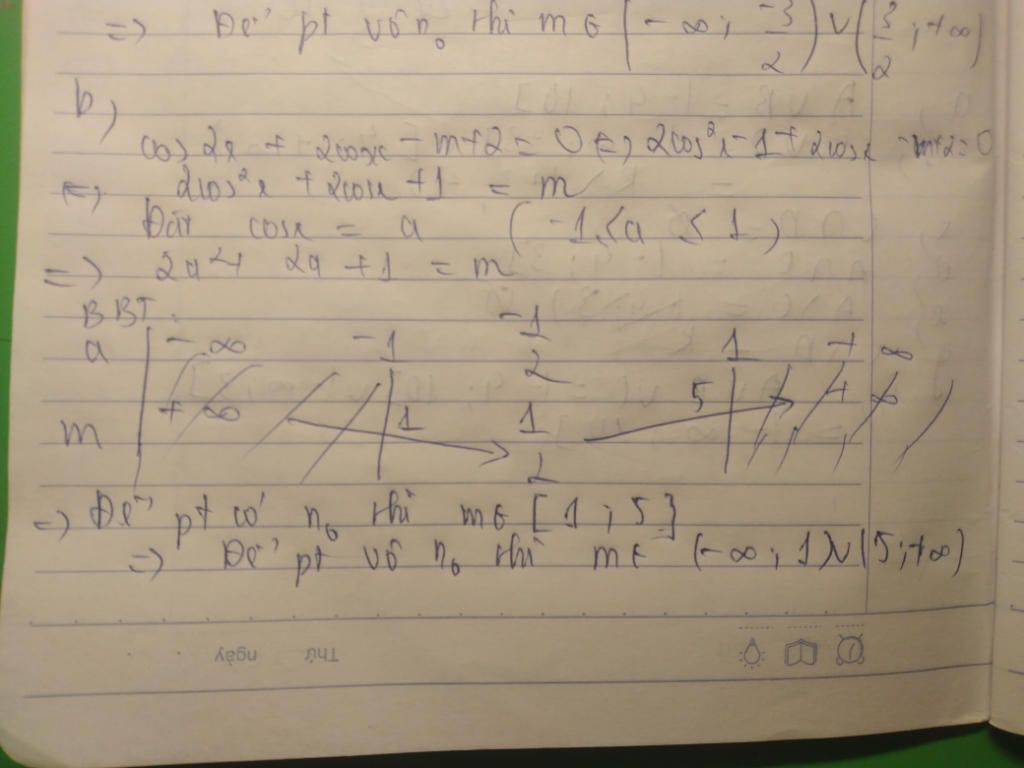 => Để pt vô n₀ thì m ∈ (-∞; -3/2) ∪ (3/2; +∞)
b,
cos2x + 2cosx - m+2 = 0 <=> 2cos²x - 1 + 2cosx - m+2=0
<=> 2cos²x + 2cosx + 1 = m
Đặt cosx = a (-1 ≤ a ≤ 1)
=> 2a² + 2a + 1 = m
BBT.
a -∞ -1 -1/2 1 +∞
m +∞ 1 1/2 5 +∞
=> Để pt có n₀ thì m ∈ [1; 5]
=> Để pt vô n₀ thì m ∈ (-∞; 1) ∪ (5; +∞)
Thứ ngày